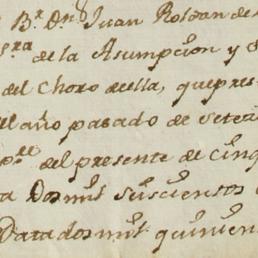 Br. Dn. Juan Roldan de
Sra. de la Asumpcion y
del choro de ella, que pres
el año pasado de seten
del presente de cinq
Dos mil seiscientos
Data dos mil quinien